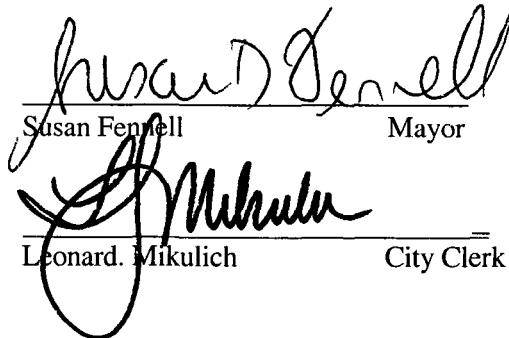 Susan D Fennell
Susan Fennell Mayor
L J Mikulich
Leonard. Mikulich City Clerk